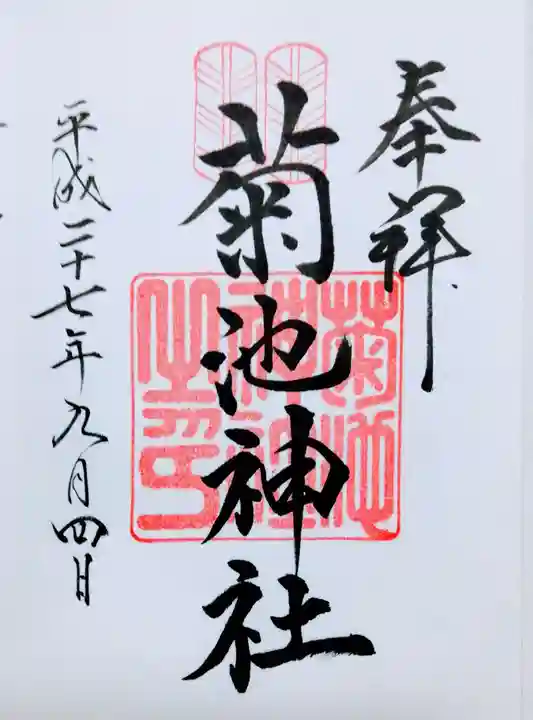 奉拝
菊池神社
菊池
神社
之印
平成二十七年九月四日